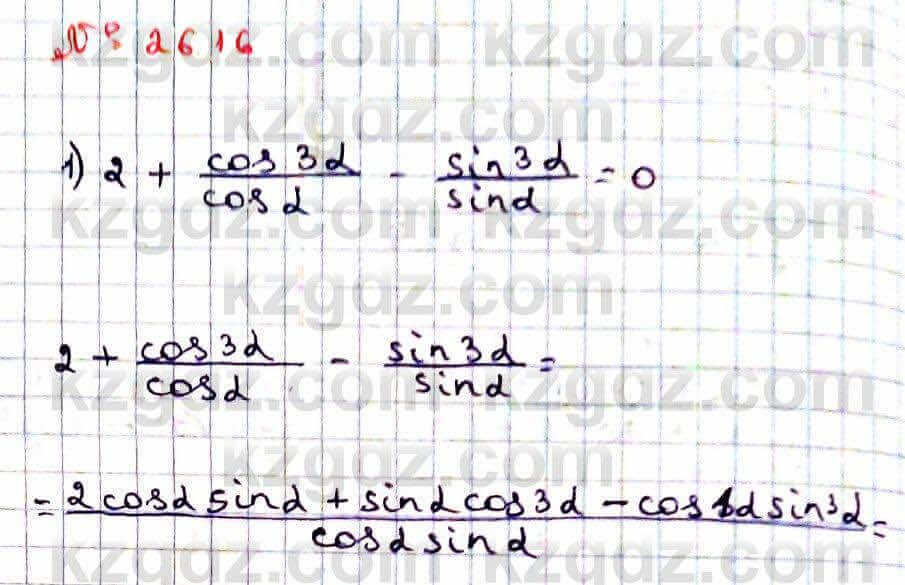 № 2616
1) 2 + cos 3α / cos α - sin 3α / sin α = 0
2 + cos 3α / cos α - sin 3α / sin α =
= 2 cos α sin α + sin α cos 3α - cos α sin 3α / cos α sin α =
kzgdz.com kzgdz.com
kzgdz.com
kzgdz.com kzgdz.com
kzgdz.com
kzgdz.com kzgdz.com
kzgdz.com
kzgdz.com kzgdz.com